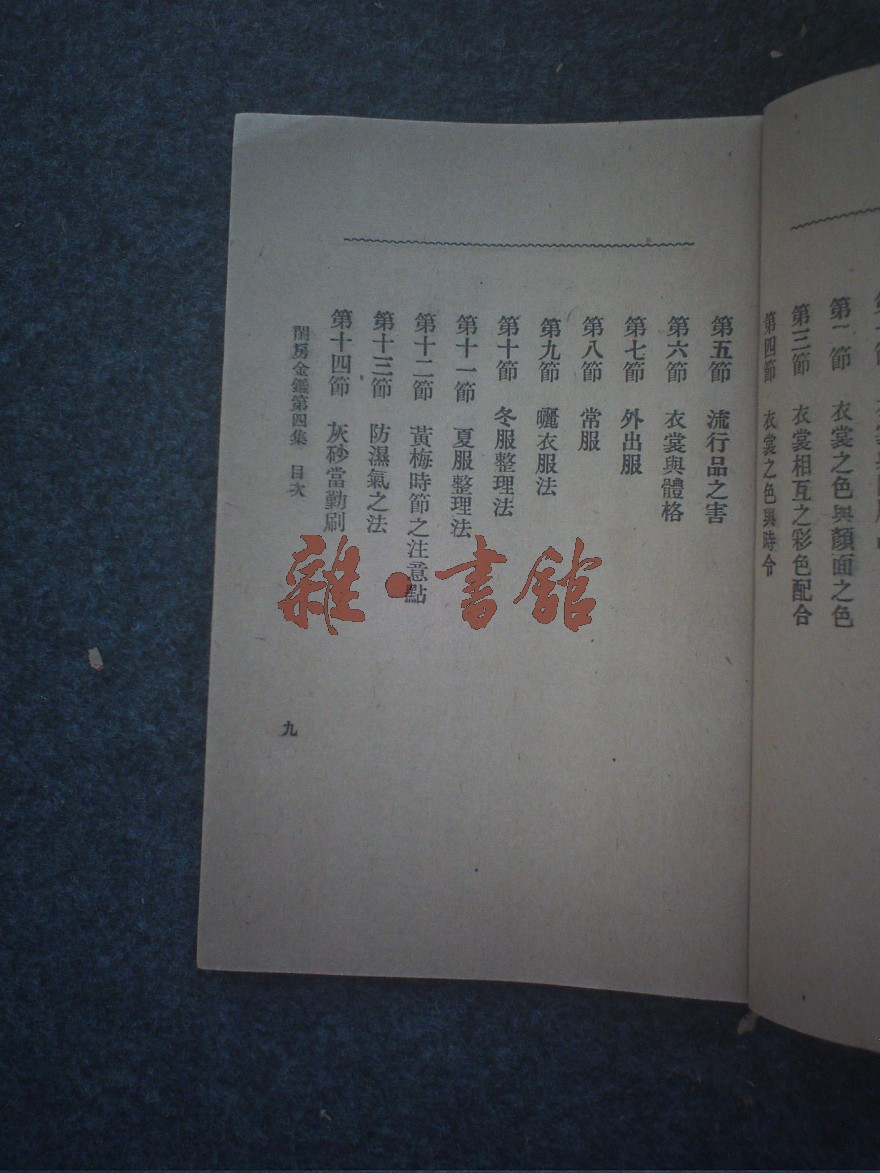 第二節　衣裳之色與顏面之色
第三節　衣裳相互之彩色配合
第四節　衣裳之色與時令
第五節　流行品之害
第六節　衣裳與體格
第七節　外出服
第八節　常服
第九節　曬衣服法
第十節　冬服整理法
第十一節　夏服整理法
第十二節　黃梅時節之注意點
第十三節　防濕氣之法
第十四節　灰砂當勤刷
閨房金鑑第四集　目次
九
雜·書館